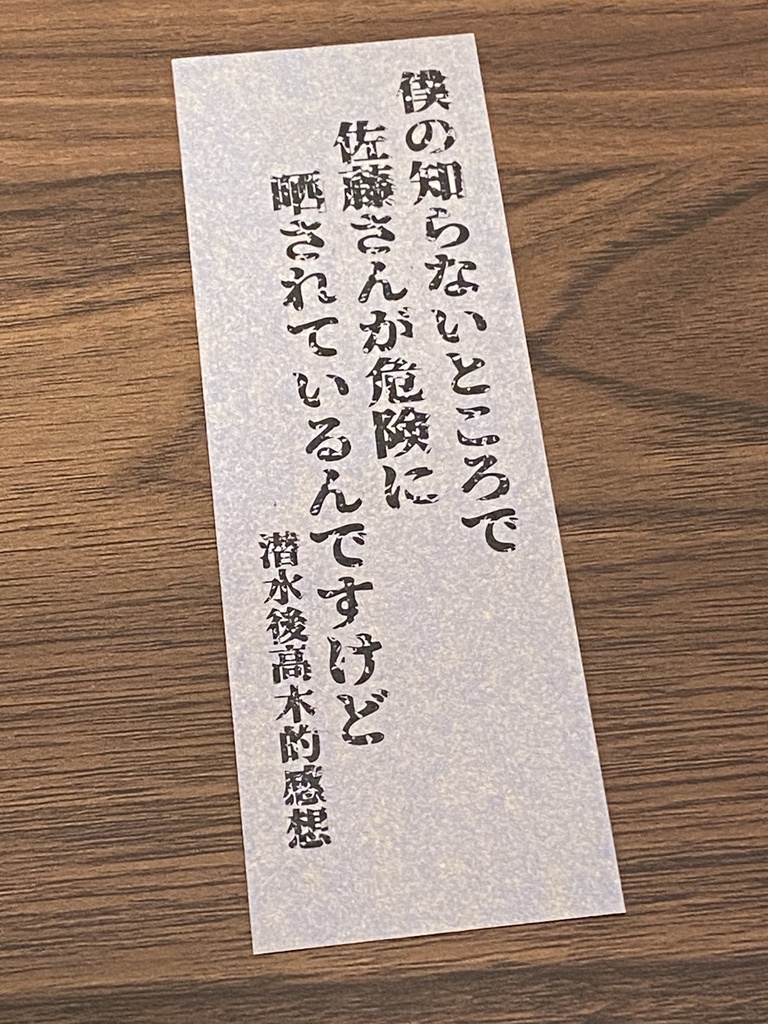 僕の知らないところで
佐藤さんが危険に
晒されているんですけど
潜水後高木的感想